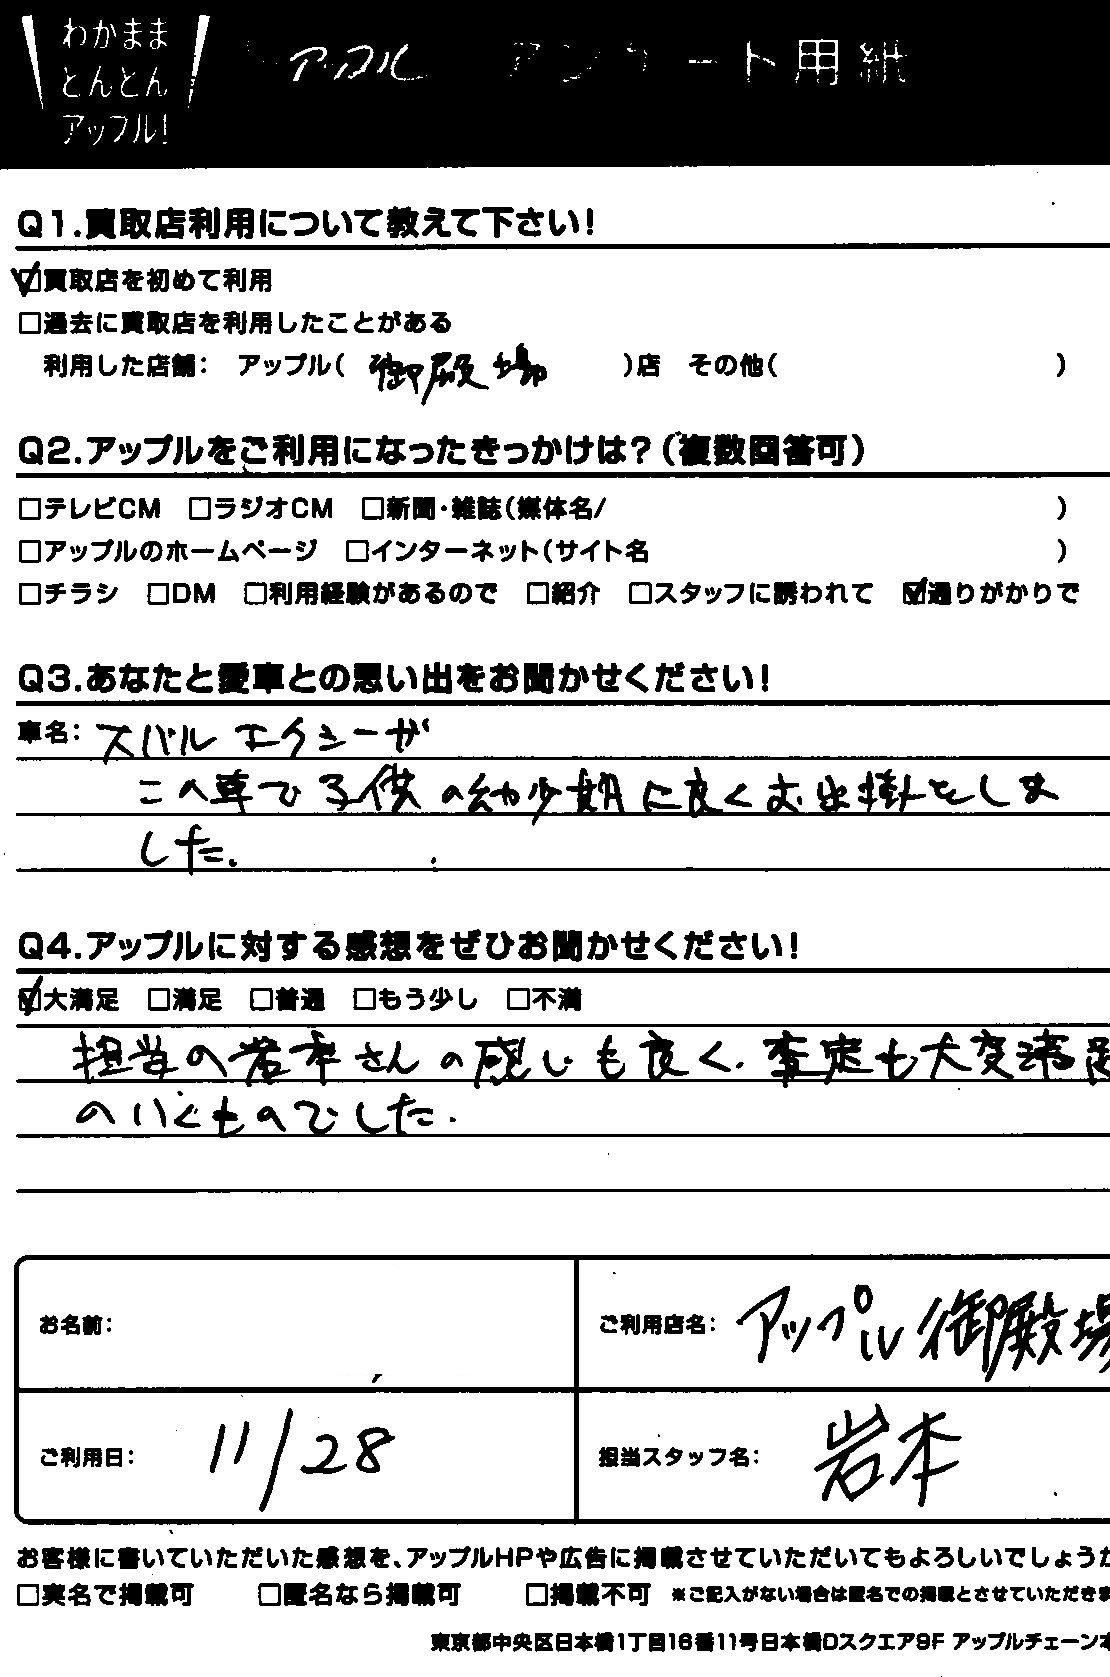 わかまま
とんとん
アップル!
アップル アンケート用紙
Q1.買取店利用について教えて下さい!
☑買取店を初めて利用
□過去に買取店を利用したことがある
利用した店舗: アップル( 御殿場 )店 その他( )
Q2.アップルをご利用になったきっかけは?(複数回答可)
□テレビCM □ラジオCM □新聞・雑誌(媒体名/ )
□アップルのホームページ □インターネット(サイト名 )
□チラシ □DM □利用経験があるので □紹介 □スタッフに誘われて ☑通りがかりで
Q3.あなたと愛車との思い出をお聞かせください!
車名: スバル エクシーガ
この車で子供の幼少期に良くお出掛をしま
した.
Q4.アップルに対する感想をぜひお聞かせください!
☑大満足 □満足 □普通 □もう少し □不満
担当の岩本さんの感じも良く、査定も大変満足
のいくものでした.
お名前:
ご利用店名: アップル御殿場
ご利用日: 11/28
担当スタッフ名: 岩本
お客様に書いていただいた感想を、アップルHPや広告に掲載させていただいてもよろしいでしょうか
□実名で掲載可 □匿名なら掲載可 □掲載不可 ※ご記入がない場合は匿名での掲載とさせていただきま
東京都中央区日本橋1丁目16番11号日本橋Dスクエア9F アップルチェーン本